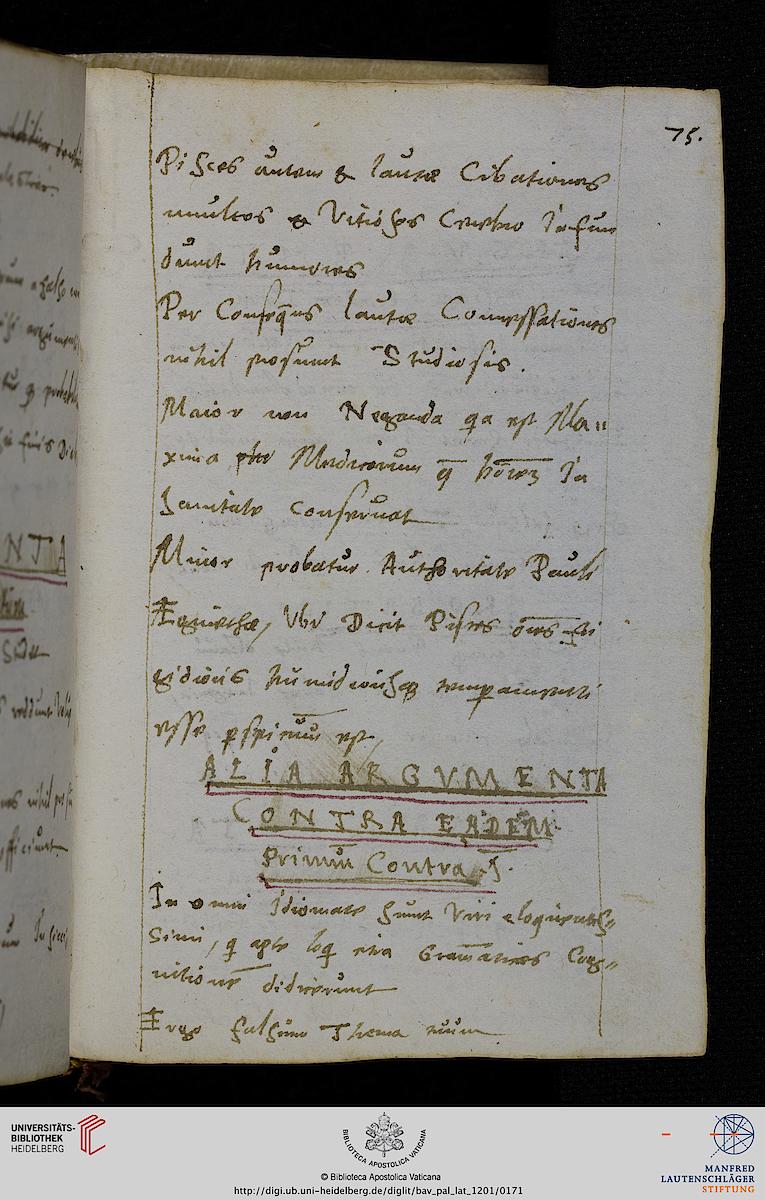 75.
Pisces autem & lautæ Cibationes
multos & Vitiosos Cerebro Infun
dunt humores
Per Conseq̄ns lautæ Comessationes
nihil prosunt Studiosis.
Maior non Neganda qa est Ma=
xima Medicorum q̄ hōīem In
Sanitate conseruat
Minor probatur Authoritate Pauli
Æginethæ, Vbi Dicit Pisces oēs
gidioris humidiorisq; temperamenti
esse pspicuū est
ALIA ARGVMENTA
CONTRA EADEM
Primūm Contra 1.
In omni Idiomate sunt Viri eloquentis=
simi, q apte loq etia Gram̄atices Cog=
nitionē didicerunt
Ergo falsum Thema tuum
UNIVERSITÄTS-
BIBLIOTHEK
HEIDELBERG
BIBLIOTHECA APOSTOLICA VATICANA
© Biblioteca Apostolica Vaticana
http://digi.ub.uni-heidelberg.de/diglit/bav_pal_lat_1201/0171
MANFRED
LAUTENSCHLÄGER
STIFTUNG